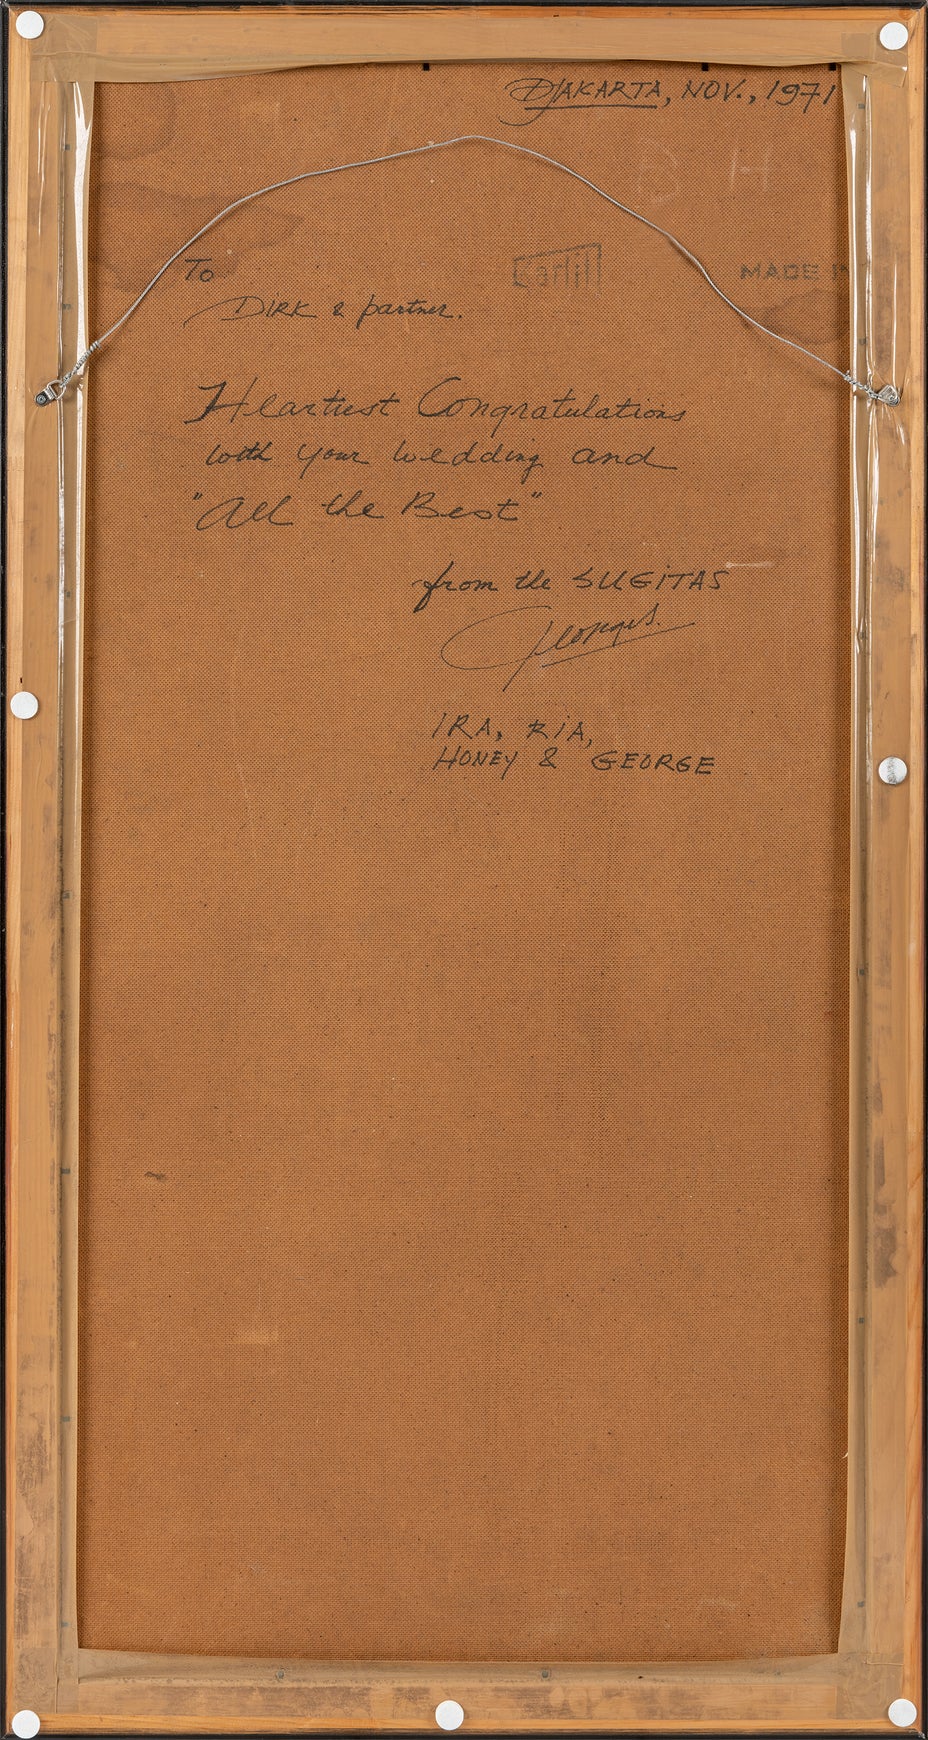 DJAKARTA, NOV., 1971
B H
MADE IN
To
DIRK & partner.
Heartiest Congratulations
with your wedding and
"All the Best"
from the SUGITAS
Georges.
IRA, RIA,
HONEY & GEORGE